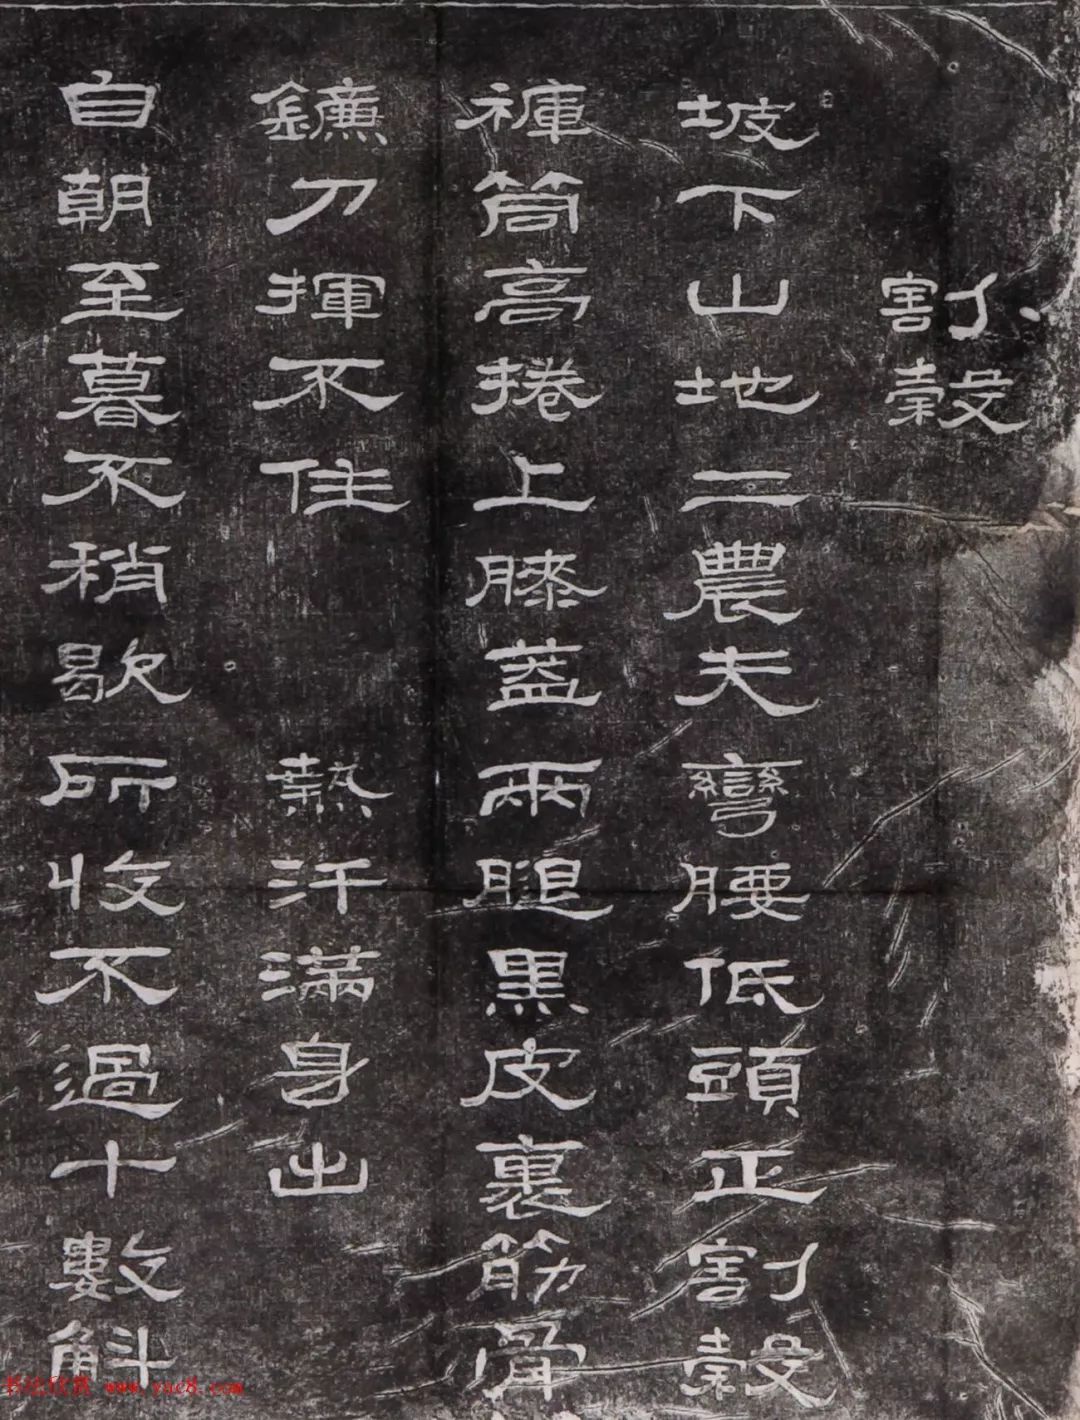 割穀
坡下山地二農夫彎腰低頭正割穀
褲筒高捲上膝蓋兩腿黑皮裏筋骨
鐮刀揮不住熱汗滿身出
自朝至暮不稍歇所收不過十數斛
书法欣赏 www.yac8.com